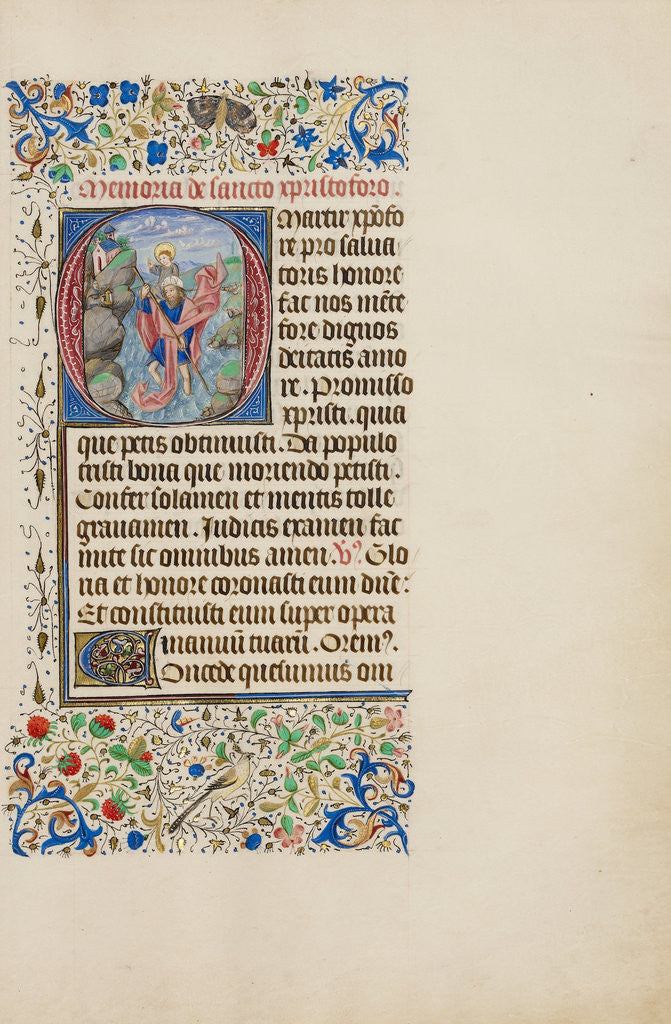 Memoria de sancto xpristoforo
O Martir xp̄ofo
re pro salua
toris honore
fac nos mēte
fore dignos
deitatis amo
re. Promisso
xpristi. quia
que petis obtinuisti. Da populo
tristi bona que moriendo petisti.
Confer solamen et mentis tolle
grauamen. Iudicis examen fac
mite sit omnibus amen. V̾. Glo
ria et honore coronasti eum dn̄e:
Et constituisti eum super opera
manuū tuarū. Orem̾.
Concede quesumus om